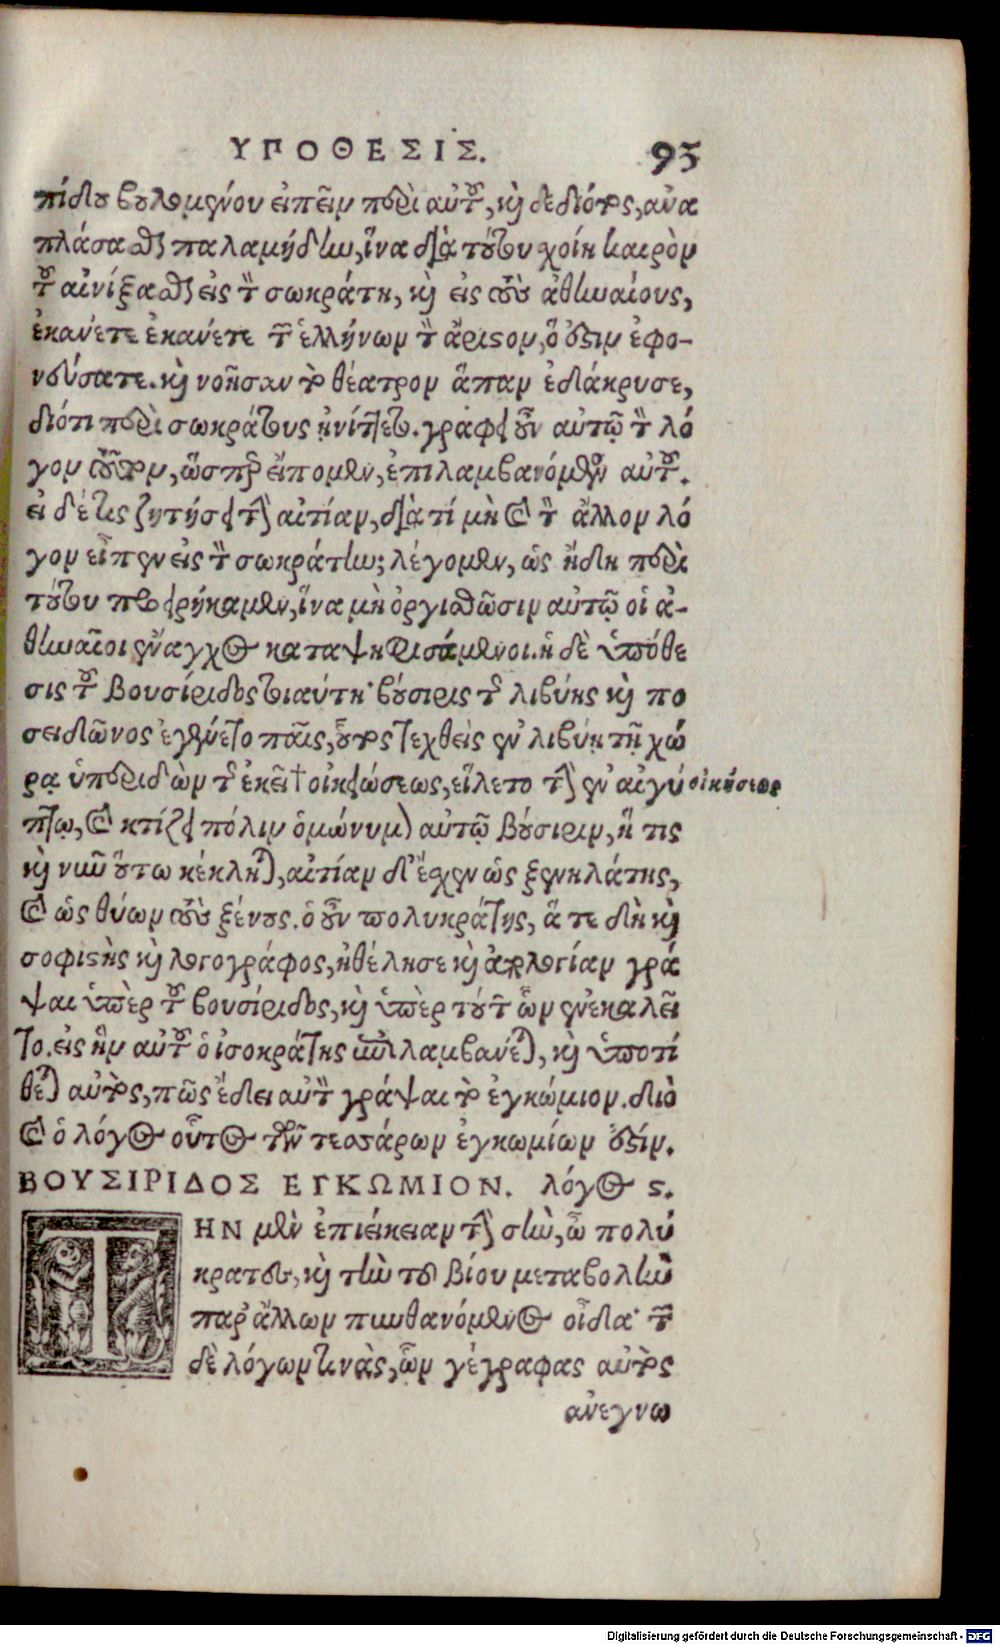 ΥΠΟΘΕΣΙΣ. 95
πίδου βουλομένου εἰπεῖν περὶ αὐτοῦ, καὶ δεδιότος, ἀνα
πλάσασθαι παλαμήδην, ἵνα διὰ τούτου χοίη καιρὸν
τοῦ αἰνίξασθαι εἰς τὸν σωκράτη, καὶ εἰς τοὺς ἀθηναίους,
ἐκάνετε ἐκάνετε τῶν ἑλλήνων τὸν ἄριστον, ὅ ἐστιν ἐφο-
νεύσατε. καὶ νοῆσαν τὸ θέατρον ἅπαν ἐδάκρυσε,
διότι περὶ σωκράτους ᾐνίττετο. γράφει οὖν αὐτῷ τὸν λό
γον τοῦτον, ὥσπερ εἴπομεν, ἐπιλαμβανόμενον αὐτοῦ.
εἰ δέ τις ζητήσει τὴν αἰτίαν, διὰ τί μὴ καὶ τὸν ἄλλον λό
γον εἶπεν εἰς τὸν σωκράτην; λέγομεν, ὡς ἤδη περὶ
τούτου προειρήκαμεν, ἵνα μὴ ὀργισθῶσιν αὐτῷ οἱ ἀ-
θηναῖοι ἔναγχος καταψηφισάμενοι. ἡ δὲ ὑπόθε
σις τοῦ βουσίριδος τοιαύτη· βούσιρις τῆς λιβύης καὶ πο
σειδῶνος ἐγένετο παῖς, οὗτος τεχθεὶς ἐν λιβύῃ τῇ χώ
ρᾳ ὑπεριδὼν τῆς ἐκεῖ † οἰκειώσεως, εἵλετο τὴν ἐν αἰγύ οἰκήσεως
πτῳ, καὶ κτίζει πόλιν ὁμώνυμον αὐτῷ βούσιριν, ἥ τις
καὶ νῦν οὕτω κέκληται, αἰτίαν δ' ἔχεν ὡς ξενηλάτης,
καὶ ὡς θύων τοὺς ξένους. ὁ οὖν πολυκράτης, ἅ τε δὴ καὶ
σοφιστὴς καὶ λογογράφος, ἠθέλησε καὶ ἀπολογίαν γρά
ψαι ὑπὲρ τοῦ βουσίριδος, καὶ ὑπὲρ τούτων ὧν ἐνεκαλεῖ
το. εἰς ἣν αὐτοῦ ὁ ἰσοκράτης ἐπιλαμβάνεται, καὶ ὑποτί
θεται αὐτὸς, πῶς ἔδει αὐτὸν γράψαι τὸ ἐγκώμιον. διὸ
καὶ ὁ λόγος οὗτος τῶν τεσσάρων ἐγκωμίων ἐστίν.
ΒΟΥΣΙΡΙΔΟΣ ΕΓΚΩΜΙΟΝ. λόγος ϛ.
ΤΗΝ μὲν ἐπιείκειαν τὴν σὴν, ὦ πολύ
κρατες, καὶ τὴν τοῦ βίου μεταβολὴν
παρ' ἄλλων πυνθανόμενος οἶδα· τῶν
δὲ λόγων τινὰς, ὧν γέγραφας αὐτὸς
ἀνεγνω
Digitalisierung gefördert durch die Deutsche Forschungsgemeinschaft - DFG